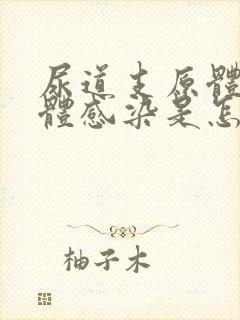 尿道支原體
體感染是怎
柚子木